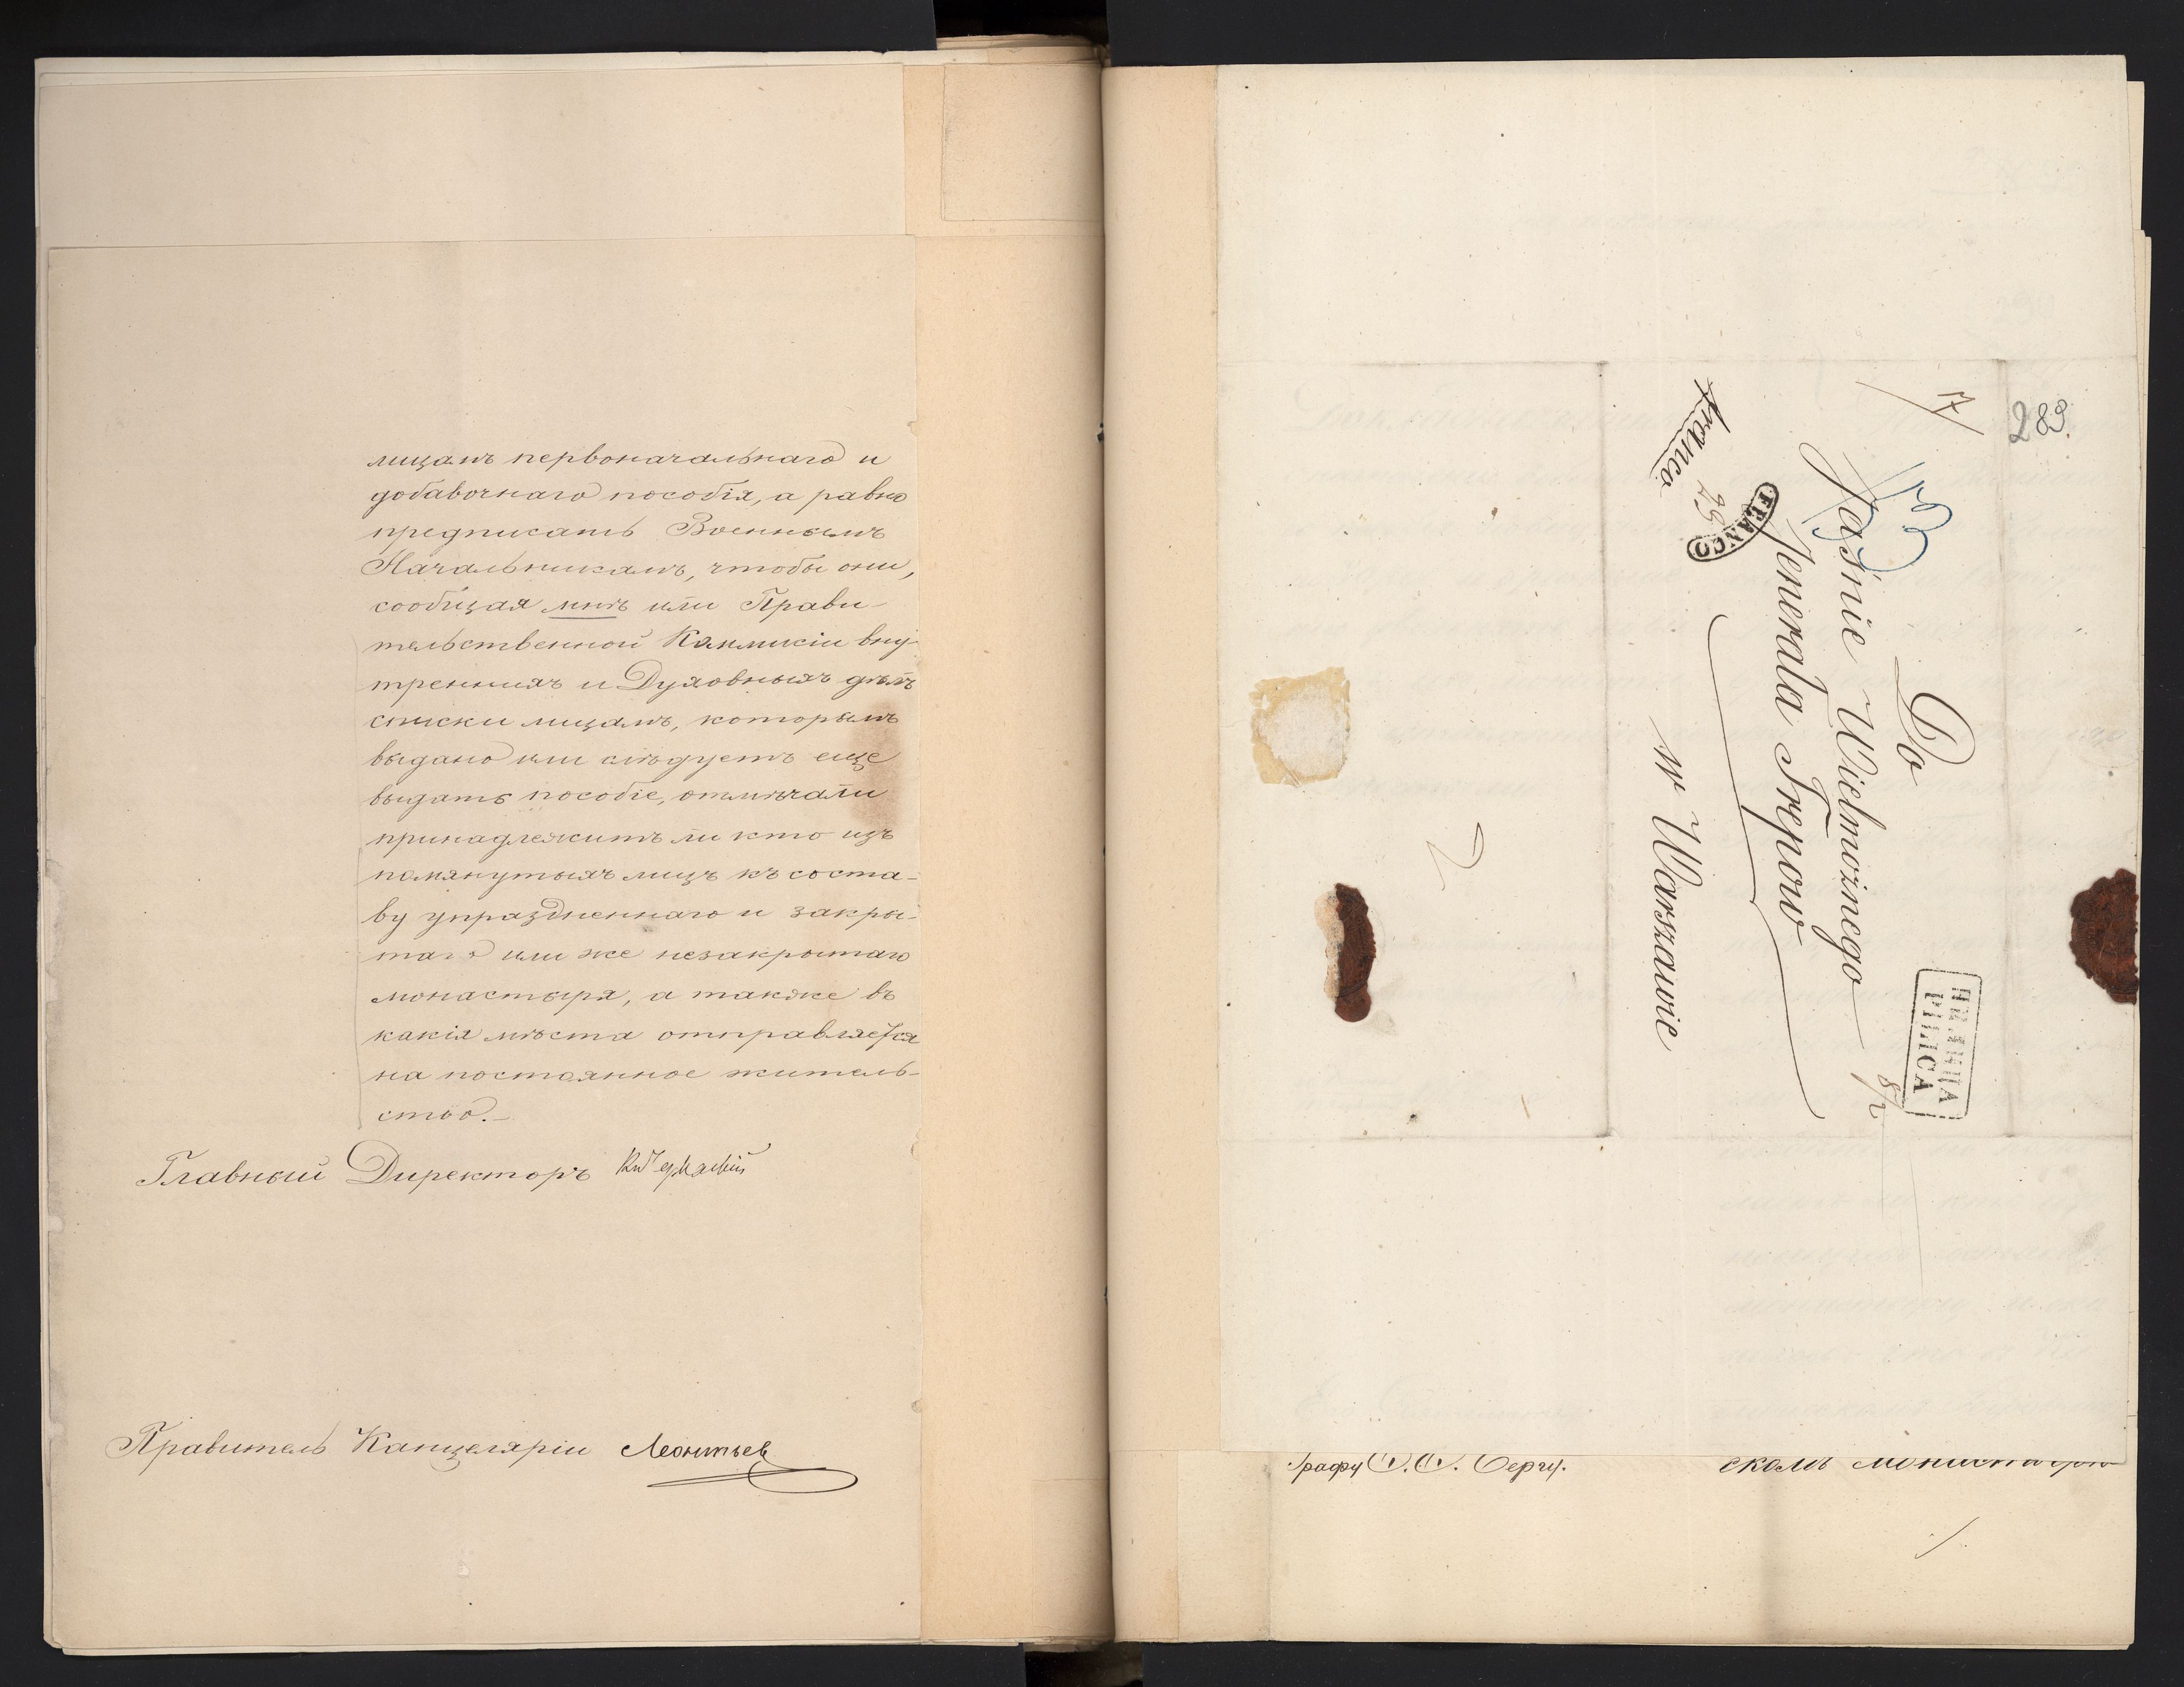 лицамъ первоначальнаго и
добавочнаго пособія, а равно
предписать Военнымъ
Начальникамъ, чтобы они,
сообщая мнѣ или Прави-
тельственной Коммисіи вну-
треннихъ и Духовныхъ дѣлъ
списки лицамъ, которымъ
выдано или слѣдуетъ еще
выдать пособіе, отмѣчали
принадлежитъ ли кто изъ
помянутыхъ лицъ къ соста-
ву упраздненнаго и закры-
таго или же незакрытаго
монастыря, а также въ
какія мѣста отправляется
на постоянное житель-
ство.-
Главный Директоръ
Правитель Канцеляріи Леонтьевъ
283.
17
Do
Jaśnie Wielmożnego
Jenerała Trepow
w Warszawie
franco
FRANCO
ПИЛИЦА
PILICA
2
Графу Ѳ. Ѳ. Бергу.
скомъ монастырѣ